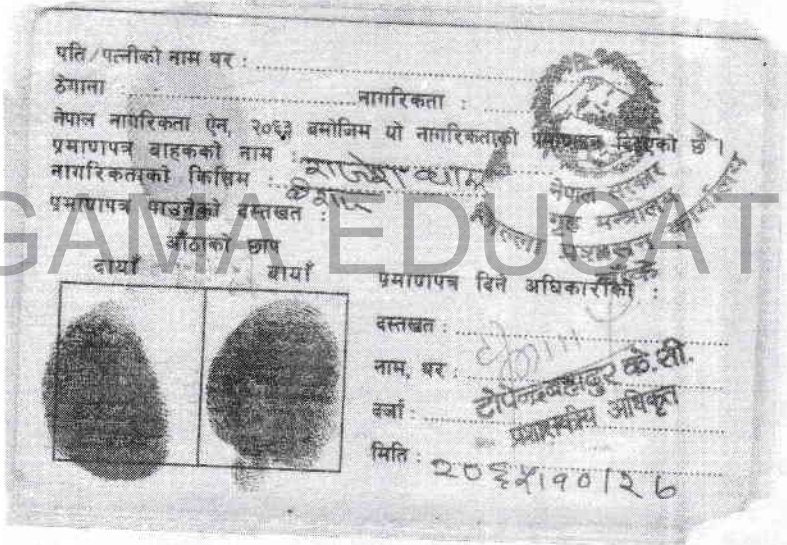 पति/पत्नीको नाम थर :
ठेगाना : नागरिकता :
नेपाल नागरिकता ऐन, २०६३ बमोजिम यो नागरिकताको प्रमाणपत्र दिइएको छ ।
प्रमाणपत्र बाहकको नाम :
नागरिकताको किसिम :
प्रमाणपत्र पाउनेको दस्तखत :
औंठाको छाप
दायाँ बायाँ
नेपाल सरकार
गृह मन्त्रालय
जिल्ला प्रशासन कार्यालय
GAMA EDUCAT
प्रमाणपत्र दिने अधिकारीको :
दस्तखत :
नाम, थर : टोपेन्द्रबहादुर के.सी.
दर्जा : प्रशासकीय अधिकृत
मिति : २०६५।१०।२७